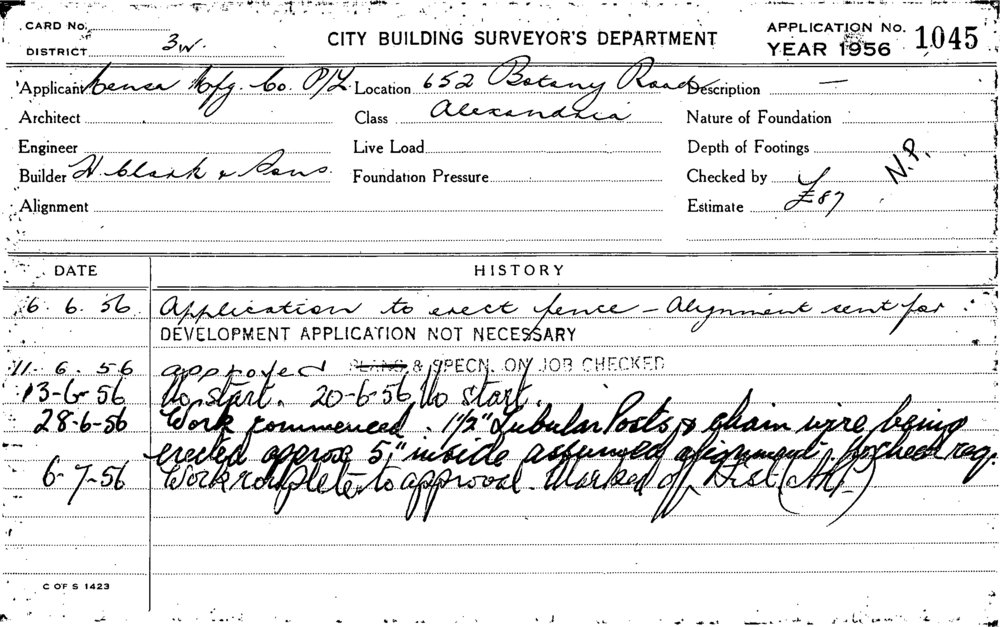 CARD No.
DISTRICT 3W.
CITY BUILDING SURVEYOR'S DEPARTMENT
APPLICATION No. 1045
YEAR 1956
Applicant Mfg. Co. P/L
Location 652 Botany Road
Description —
Architect
Class Alexandria
Nature of Foundation
Engineer
Live Load
Depth of Footings
Builder H. Clark & Sons.
Foundation Pressure
Checked by
N.P.
Alignment
Estimate £87
DATE HISTORY
6. 6. 56 Application to erect fence – Alignment sent for
DEVELOPMENT APPLICATION NOT NECESSARY
11. 6. 56 approved PLANS & SPECN. ON JOB CHECKED
13-6-56 No start. 20-6-56 No start.
28-6-56 Work commenced. 1½" Tubular Posts & chain wire being
erected approx 5" inside assumed alignment. No check req.
6-7-56 Work complete to approval. Marked off Dist
C OF S 1423